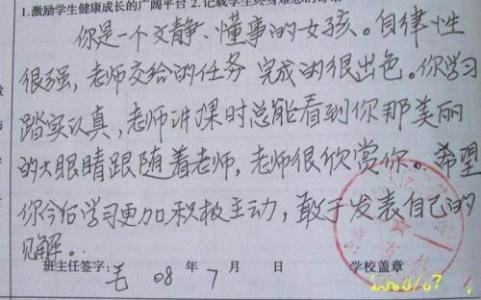 1.激励学生健康成长的广阔平台 2.记载学生终身难忘的
你是一个文静、懂事的女孩。自律性
很强，老师交给的任务完成的很出色。你学习
踏实认真，老师讲课时总能看到你那美丽
的大眼睛跟随着老师，老师很欣赏你。希望
你今后学习更加积极主动，敢于发表自己的
见解。
班主任签字： 08 年 7 月 日 学校盖章